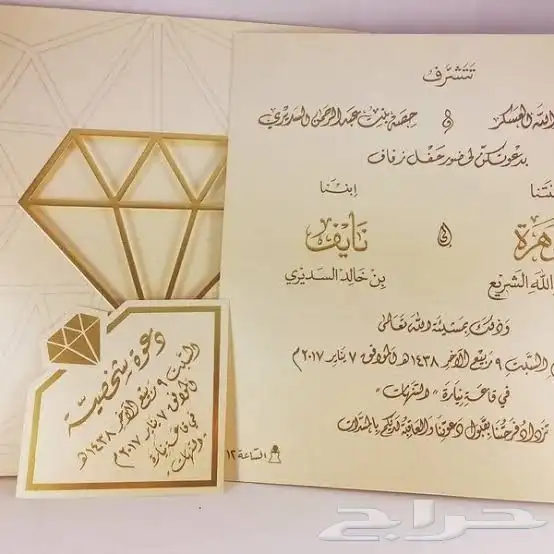 تتشرف
الله العسكر و حصة بنت عبدالرحمن السديري
بدعوتكن لحضور حفل زفاف
ابننا
إلى نايف
الله الشريع بن خالد السديري
وذلك بمشيئة الله تعالى
السبت ٩ ربيع الآخر ١٤٣٨هـ الموافق ٧ يناير ٢٠١٧م
في قاعة نيارة "النزهات"
تزداد فرحتنا بقبول دعوتنا والعاقبة لديكم بالمسرات
الساعة ١٢
دعوة شخصية
السبت ٩ ربيع الآخر ١٤٣٨هـ
الموافق ٧ يناير ٢٠١٧م
في قاعة نيارة
"النزهات"
حراج